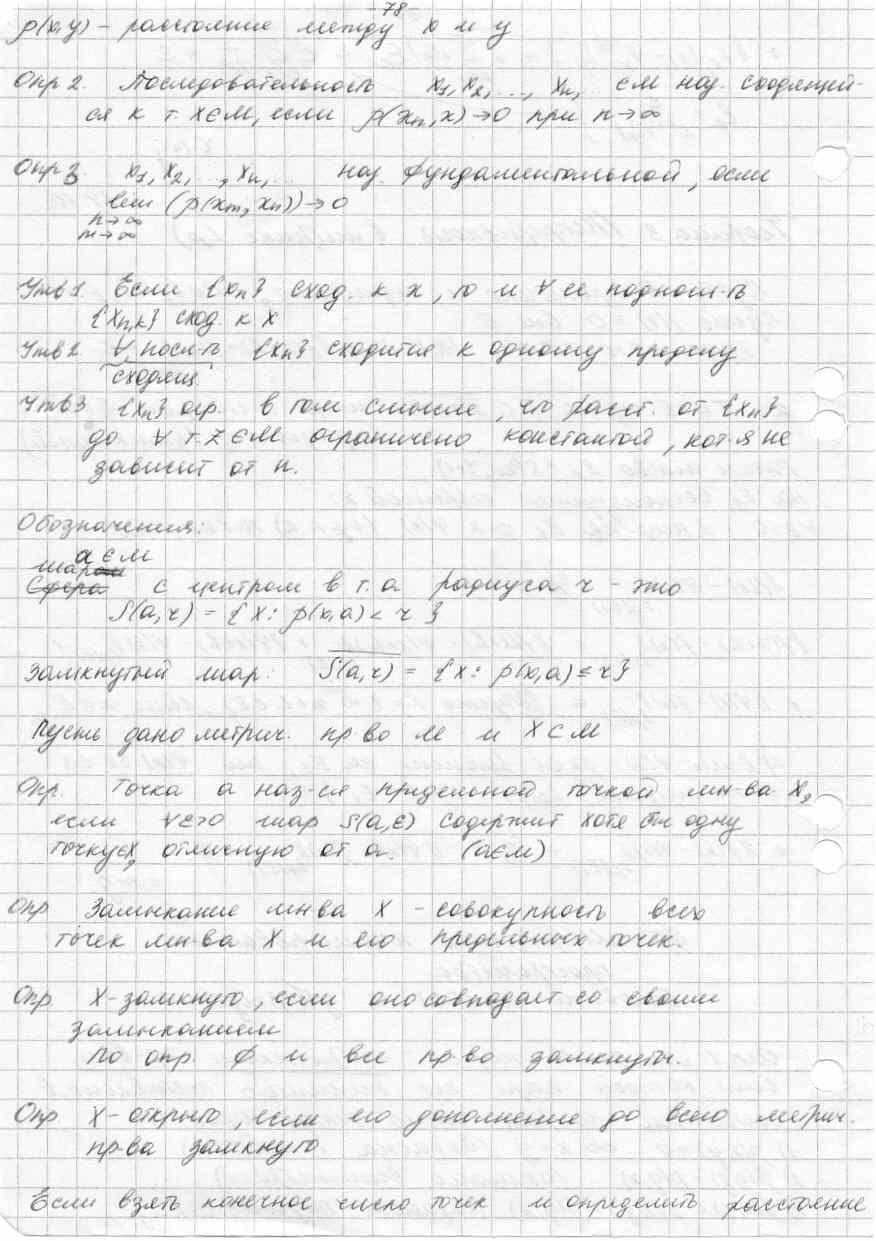 -78-
ρ(x,y) – расстояние между x и y
Опр 2. Последовательность x₁, x₂, ..., xₙ, ... ∈ M наз. сходящей-
ся к т. x∈M, если ρ(xₙ, x) → 0 при n → ∞
Опр 3. x₁, x₂, ..., xₙ, ... наз. фундаментальной, если
lim (ρ(xₘ, xₙ)) → 0
n → ∞
m → ∞
Утв 1. Если {xₙ} сход. к x, то и ∀ ее подпосл-ть
{xₙ,ₖ} сход. к x
Утв 2. ∀ посл-ть {xₙ} сходится к одному пределу
сходящ.
Утв 3 {xₙ} огр. в том смысле, что расст. от {xₙ}
до ∀ т. z ∈ M ограничено константой, кот-я не
зависит от n.
Обозначения:
a ∈ M
шар
Сфера с центром в т. a радиуса r – это
S(a,r) = {x: ρ(x,a) < r}
Замкнутый шар: S̅(̅a̅,̅r̅)̅ = {x: ρ(x,a) ≤ r}
Пусть дано метрич. пр-во M и X ⊂ M
Опр. Точка a наз-ся предельной точкой мн-ва X,
если ∀ε>0 шар S(a,ε) содержит хотя бы одну
точку∈X, отличную от a. (a∈M)
Опр Замыкание мн-ва X – совокупность всех
точек мн-ва X и его предельных точек.
Опр X – замкнуто, если оно совпадает со своим
замыканием
По опр. ∅ и все пр-во замкнуты.
Опр. X – открыто, если его дополнение до всего метрич.
пр-ва замкнуто
Если взять конечное число точек и определить расстояние